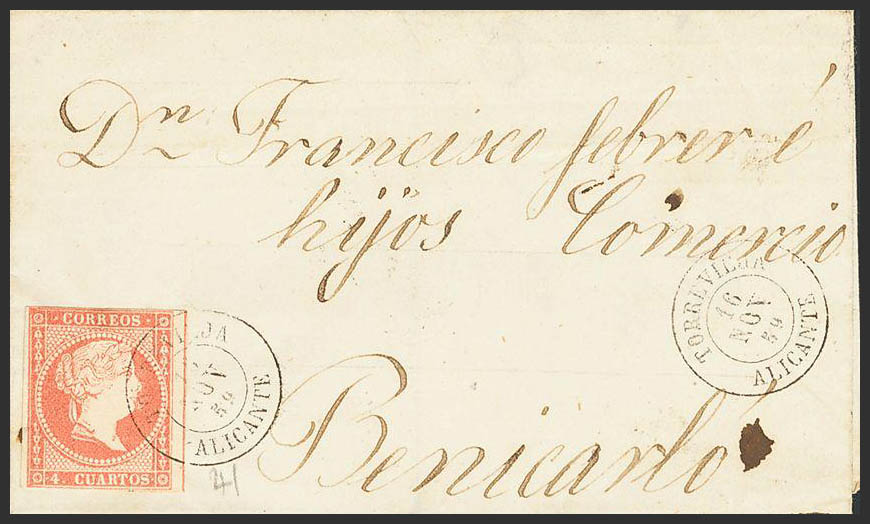 Dn Francisco febrer é
hijos Comercio
Benicarló
CORREOS
4 CUARTOS
ALICANTE
NOV
59
41
TORREVIEJA
16
NOV
59
ALICANTE